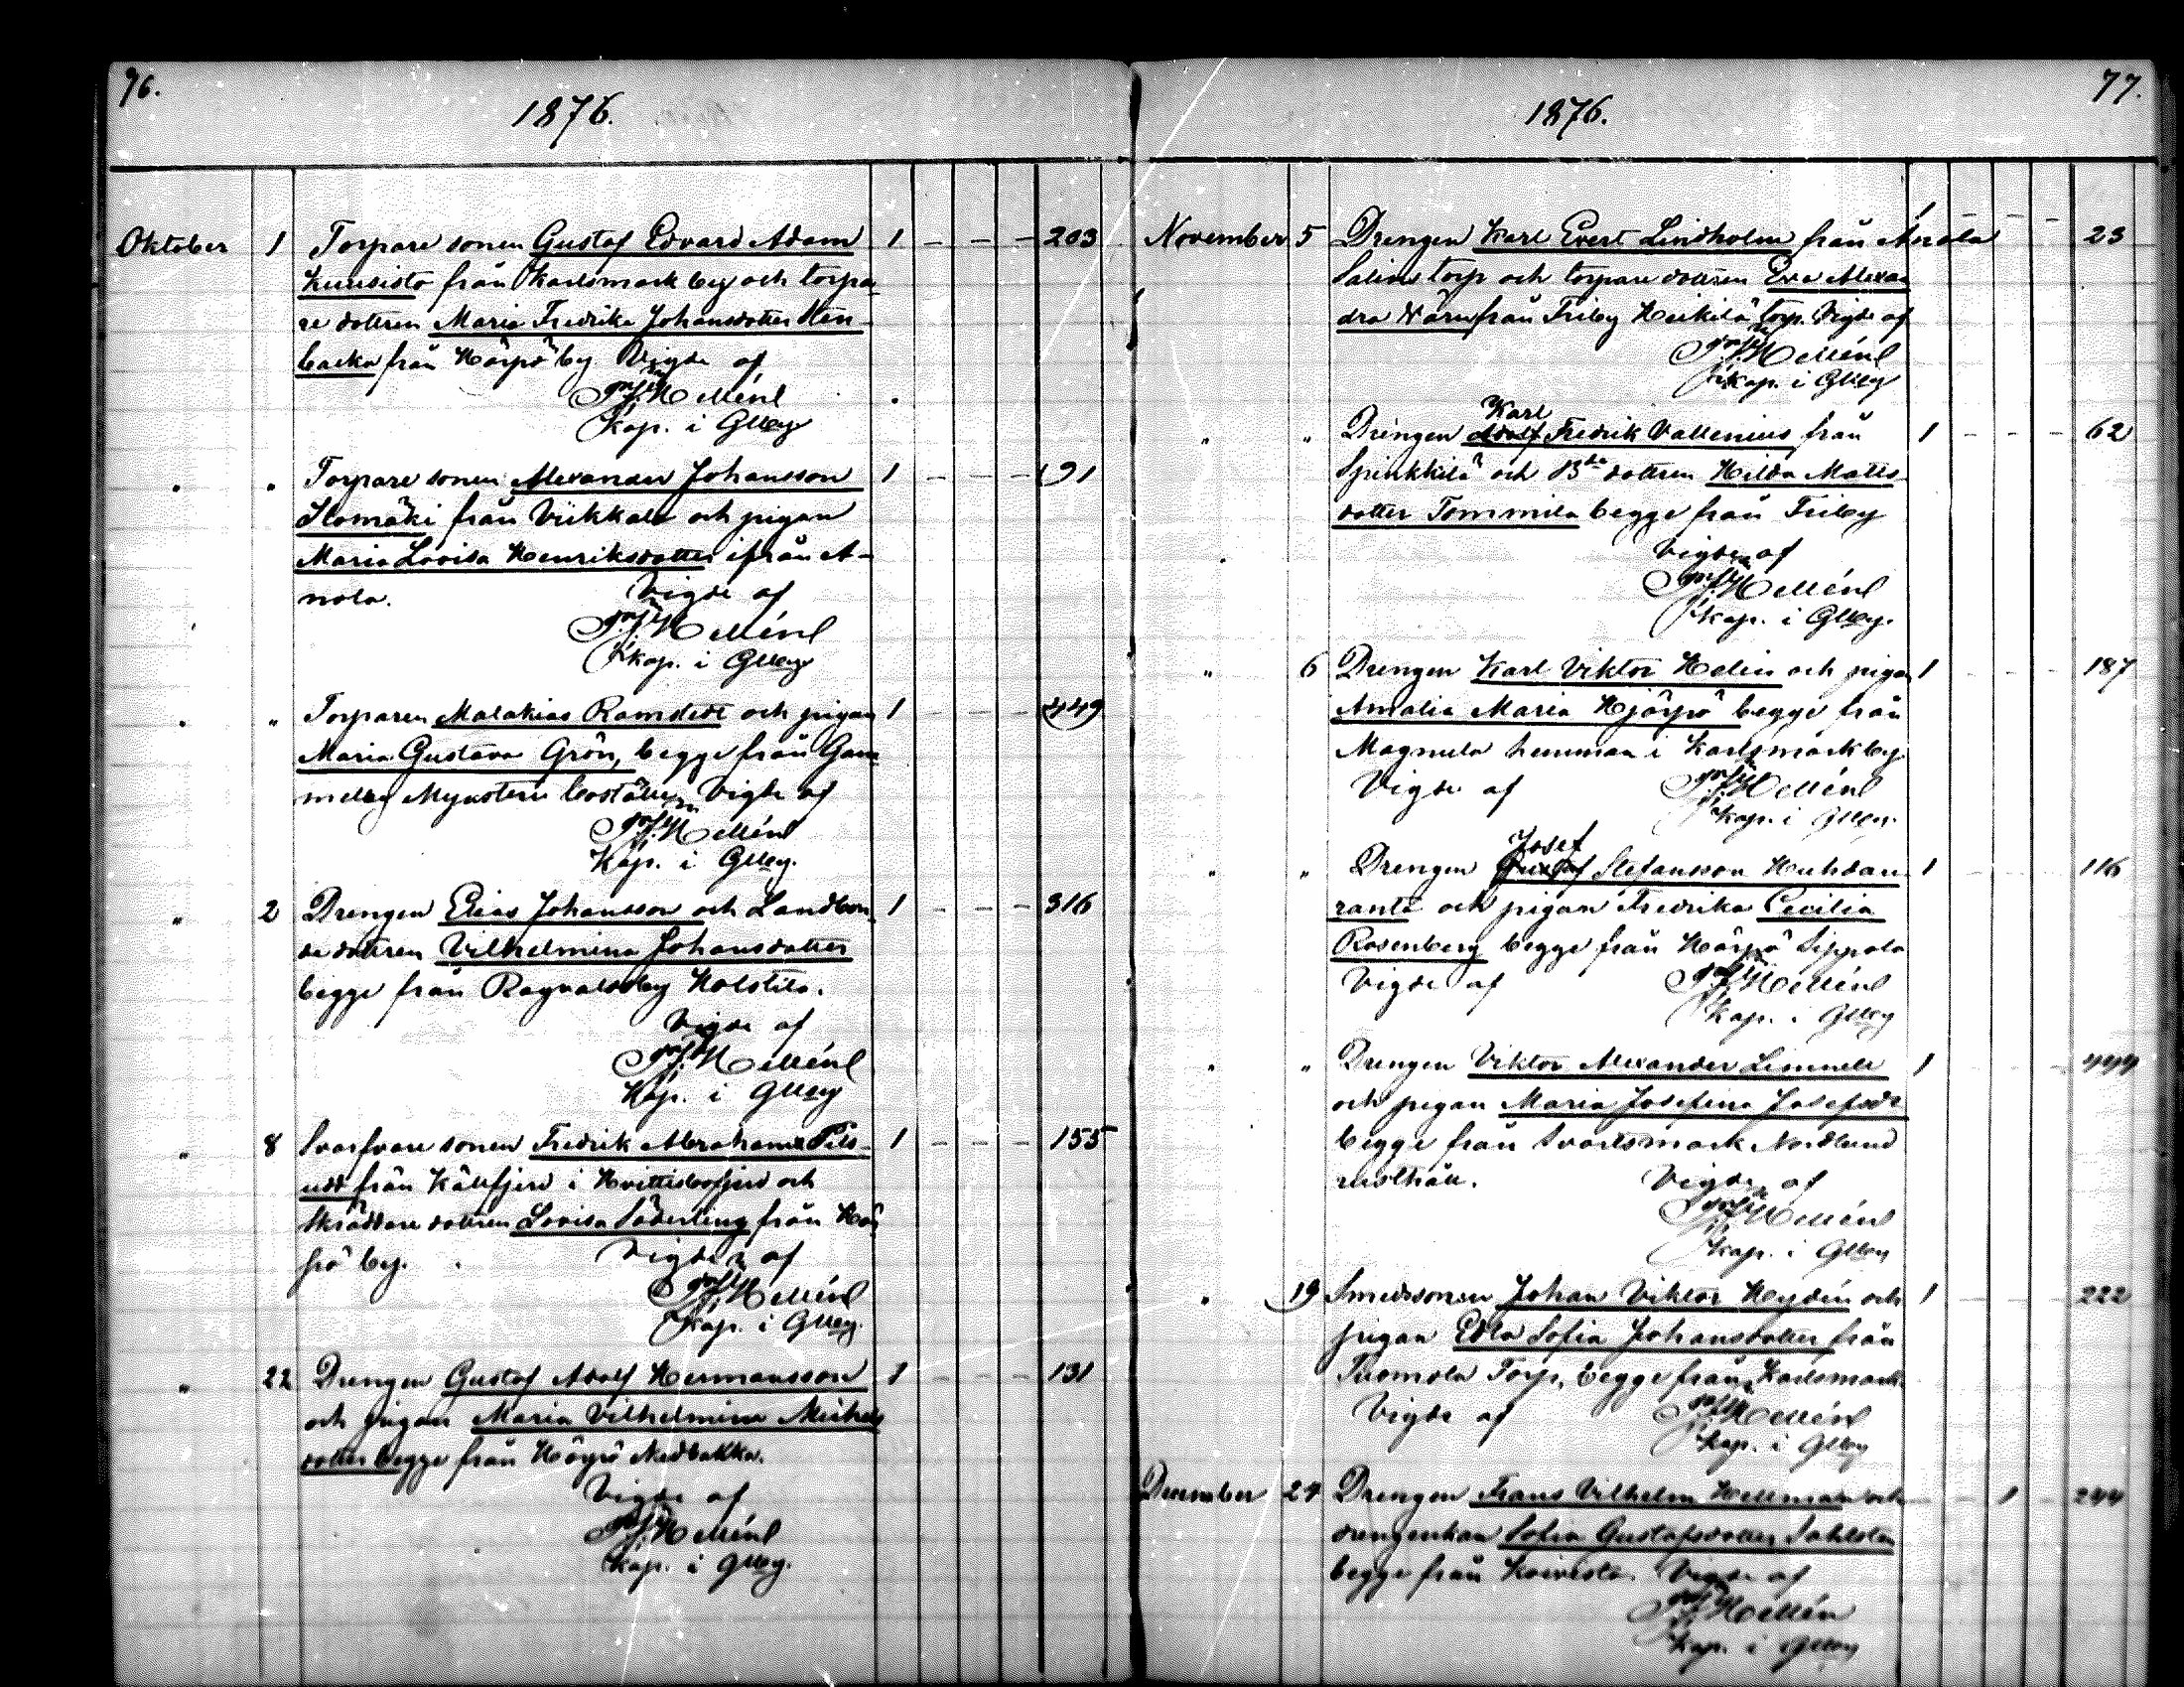 76.
1876.
Oktober 1 Torpare sonen Gustaf Edvard Adam 1 - - - 203
Kuusisto från Karlsmark by och torpa-
re dottren Maria Fredrika Johansdotter Sten-
backa från Härpö by Vigde af
Hellén
Kap. i Glby
" " Torpare sonen Alexander Johansson 1 - - - 191
Ilomäki från Viikkala och pigan
Maria Lovisa Henriksdotter ifrån A-
nola. Vigde af
Hellén
kap. i Glby
" " Torparen Malakias Ramstedt och pigan 1 - - - 449
Maria Gustava Grön, begge från Gam-
melby boställe Vigde af
Hellén
Kap. i Glby.
" 2 Drengen Elias Johansson och Landbon- 1 - - - 316
de dottren Vilhelmina Johansdotter
begge från Ragvaldsby Holstila.
Vigde af
Hellén
Kap. i Glby
" 8 Svarfvare sonen Fredrik Abraham 1 - - - 155
från Källfjerd i Hvittisbofjerd och
Skräddare dottren Lovisa Söderling från Här-
pö by. Vigde af
Hellén
Kap. i Glby.
" 22 Drengen Gustaf Adolf Hermansson 1 - - - 131
och pigan Maria Vilhelmina Michels-
dotter begge från Härpö Nedbakka.
Vigde af
Hellén
kap. i Glby.
77.
1876.
November 5 Drengen Karl Evert Lindholm från Anola 1 - - - 23
Salins torp och torpare dottren Eva Alexan-
dra från Friby Heikilä torp. Vigde af
Hellén
kap. i Glby
Karl
" " Drengen Adolf Fredrik Vallenius från 1 - - - 62
Spinkkilä och Bde dottren Hilda Matts-
dotter Tommila begge från Friby
Vigde af
Hellén
kap. i Glby.
" 6 Drengen Karl Viktor Helin och pigan 1 - - - 187
Amalia Maria Hjärpö begge från
Magnula hemman i Karlsmark by.
Vigde af Hellén
kap. i Glby.
Josef
" " Drengen Gustaf Stefansson Huhdan- 1 116
ranta och pigan Fredrika Cecilia
Rosenberg begge från Härpö Sippola
Vigde af Hellén
Kap. i Glby
" " Drengen Viktor Alexander 1 444
och pigan Maria Josefina Josefsdr
begge från Svartsmark Nordlund
rusthåll. Vigde af
Hellén
kap. i Glby
" 19 Smedssonen Johan Viktor Heydén och 1 222
pigan Edla Sofia Johansdotter från
Tuomola Torp, begge från Karlsmark
Vigde af Hellén
kap. i Glby
December 24 Drengen Frans Vilhelm Hellman och - - 1 244
drengenkan Sofia Gustafsdotter Sahlsten
begge från Koivisto. Vigde af
Hellén
kap. i Glby